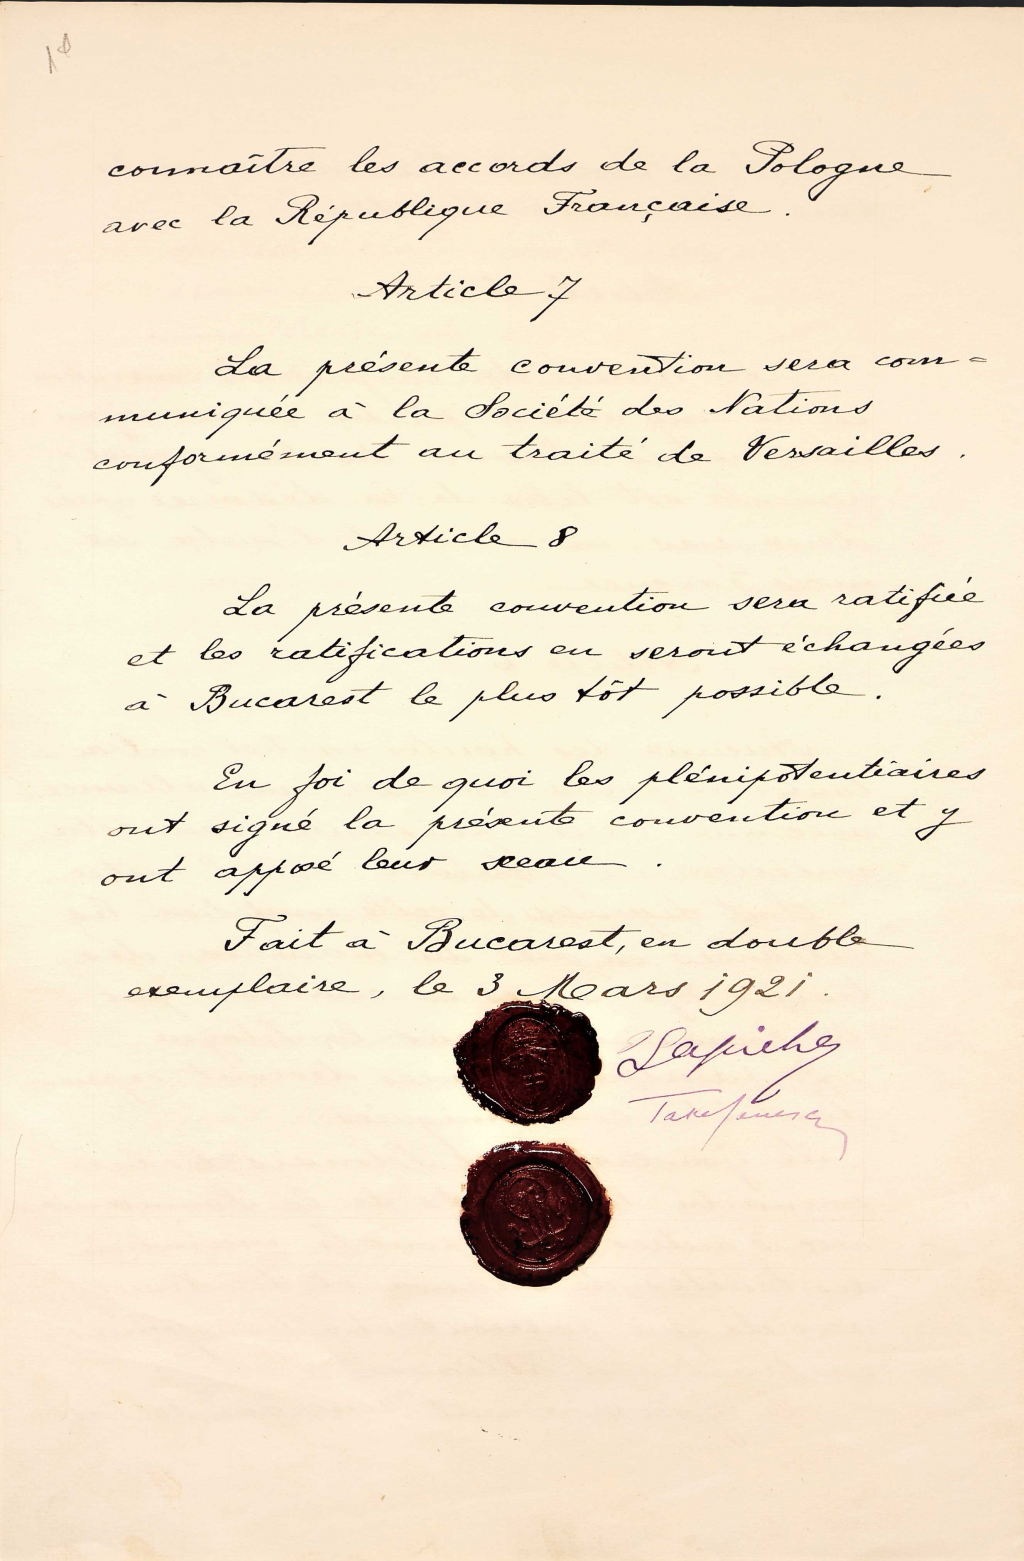 connaître les accords de la Pologne
avec la République Française.
Article 7
La présente convention sera com=
muniquée à la Société des Nations
conformément au traité de Versailles.
Article 8
La présente convention sera ratifiée
et les ratifications en seront échangées
à Bucarest le plus tôt possible.
En foi de quoi les plénipotentiaires
ont signé la présente convention et y
ont apposé leur sceau.
Fait à Bucarest, en double
exemplaire, le 3 Mars 1921.
Take Jonescu